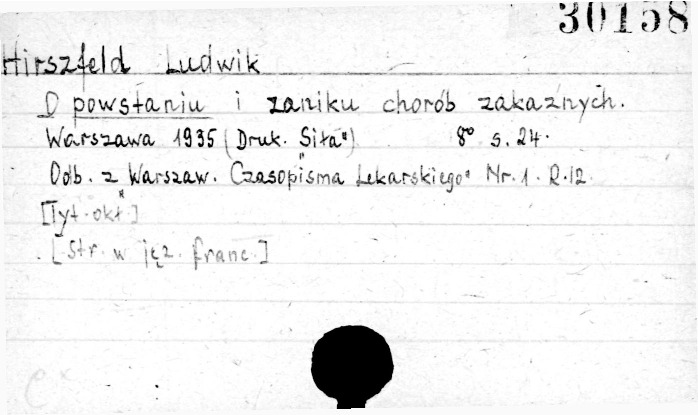 30158
Hirszfeld Ludwik
O powstaniu i zaniku chorób zakaźnych.
Warszawa 1935 (Druk. „Siła") 8° s. 24.
Odb. z „Warszaw. Czasopisma Lekarskiego" Nr. 1. R. 12.
[Tyt. okł.]
[Str. w jęz. franc.]